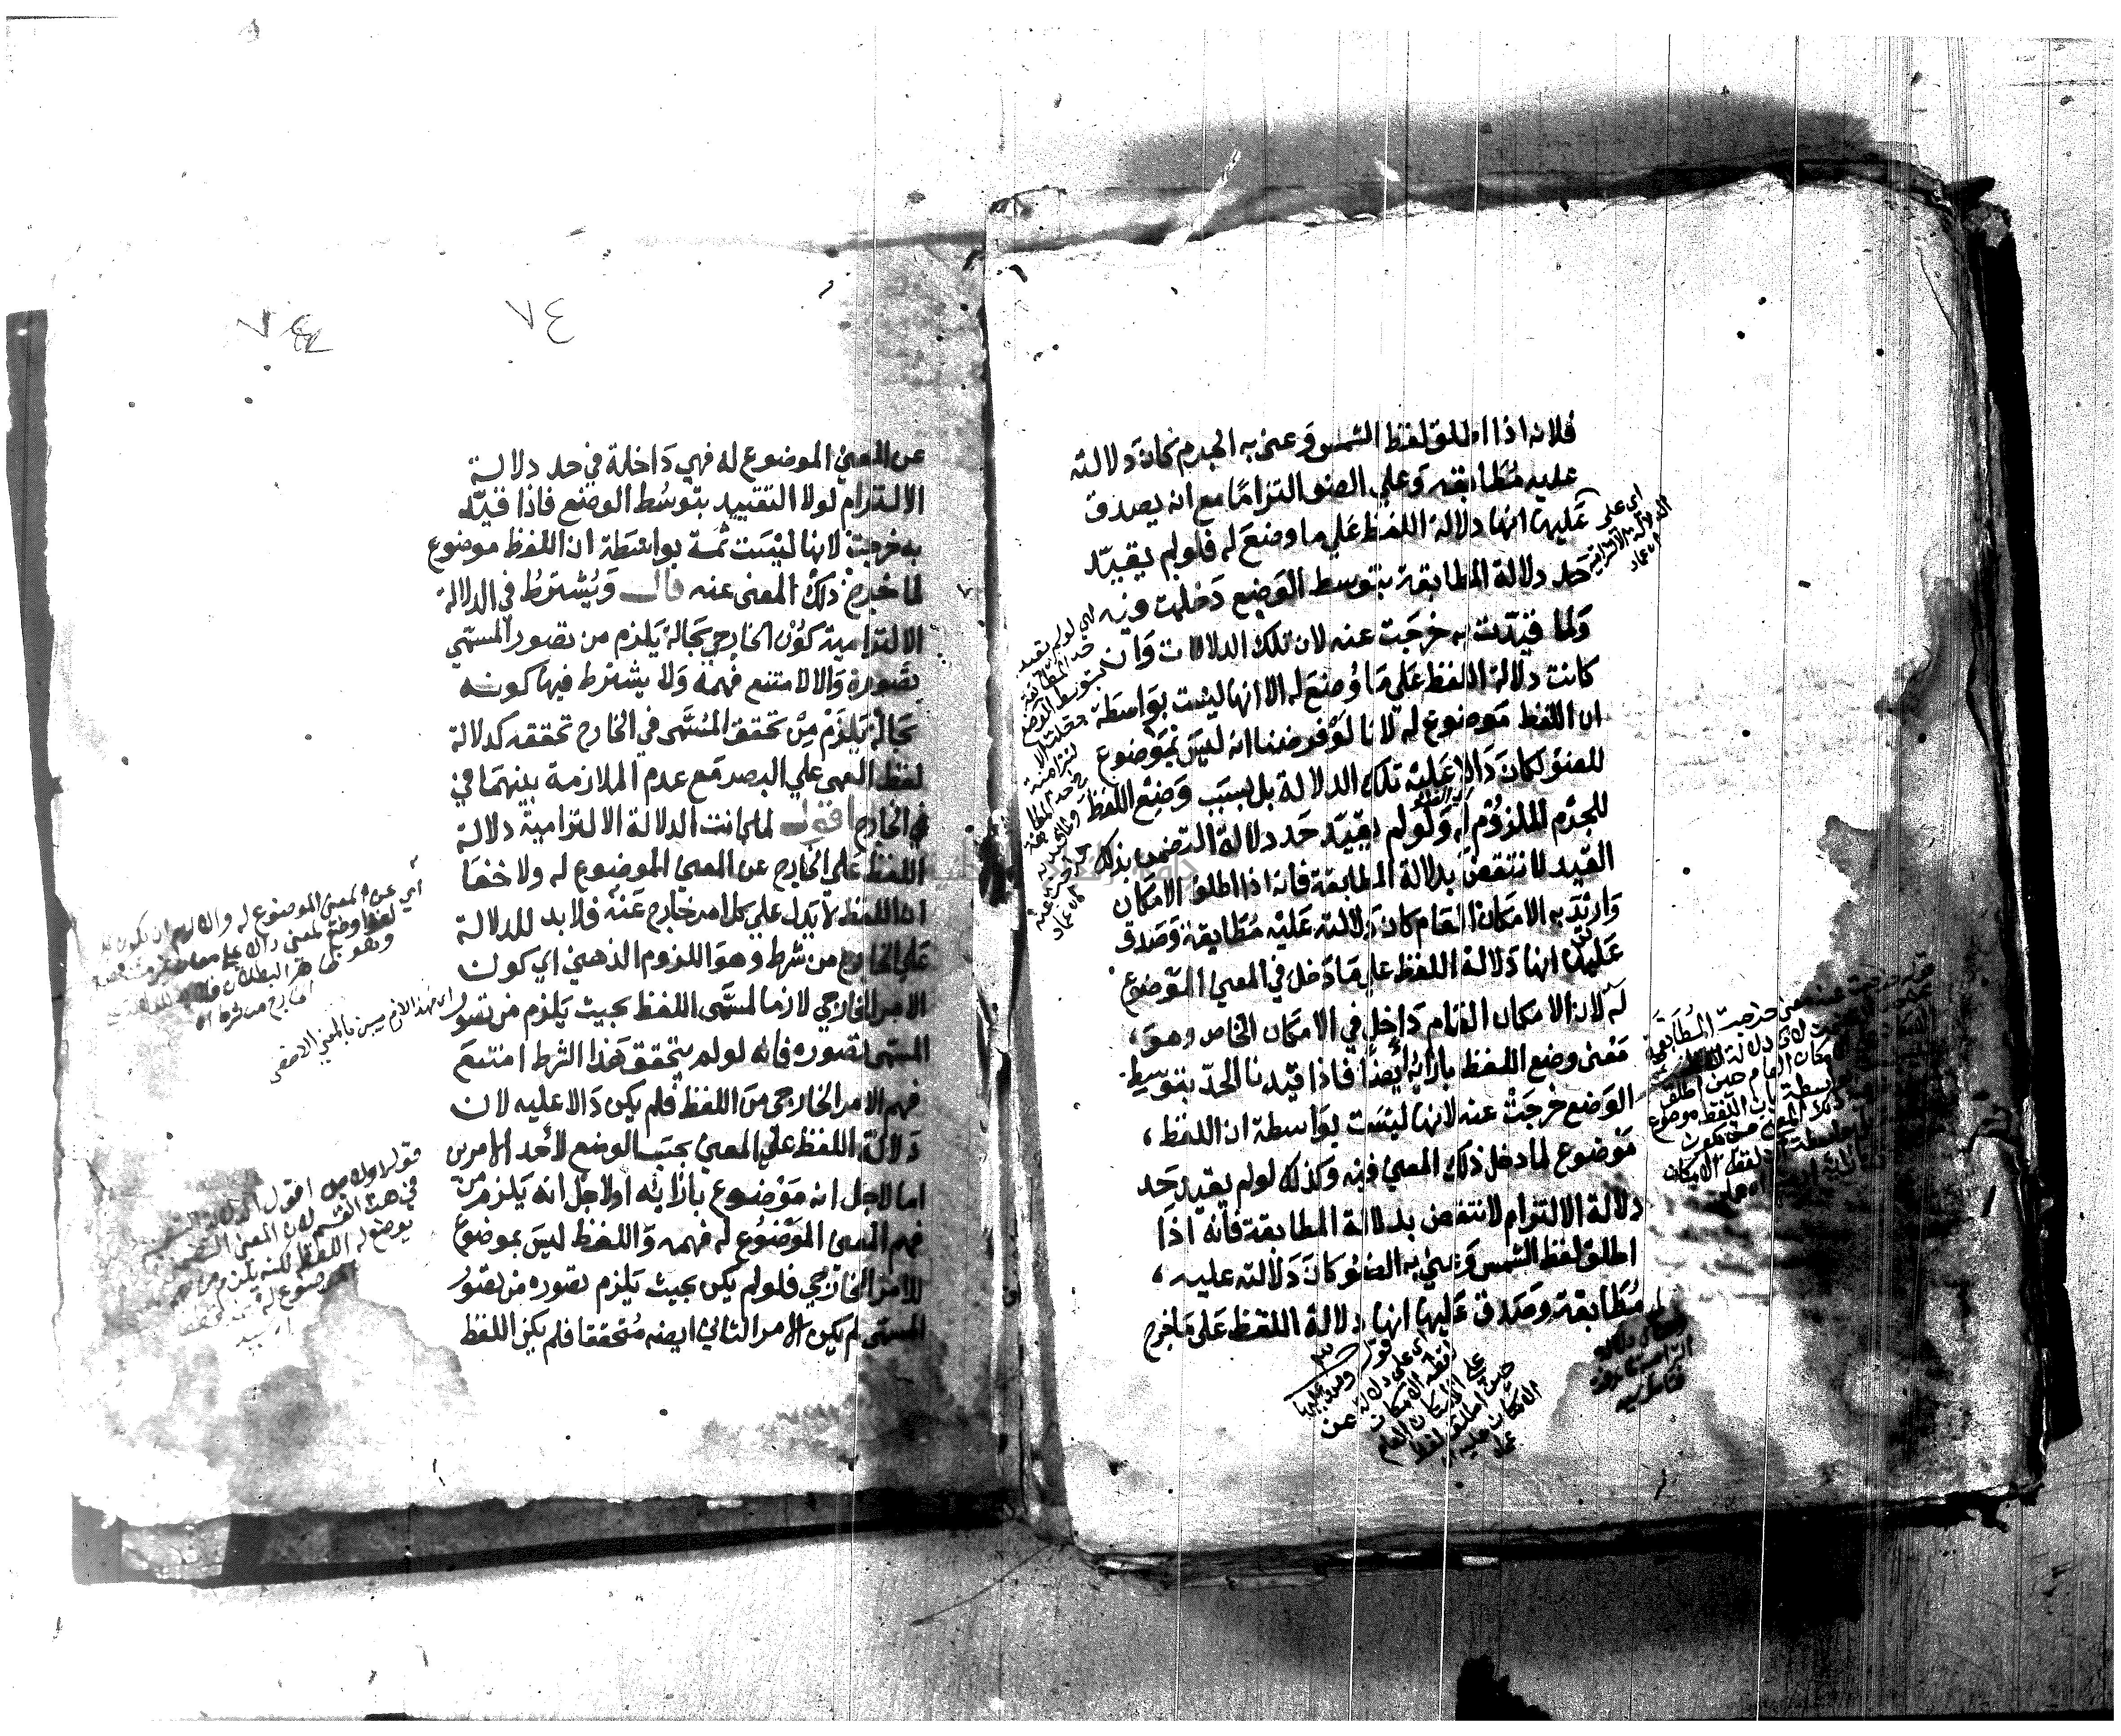 فلانه اذا اطلق لفظ الشمس وعنى به الجرم كان دلالته
عليه مطابقة وعلي الضو التزاما مع انه يصدق
عليها انها دلالة اللفظ علي ما وضع له فلو لم يقيد
حد دلالة المطابقة بتوسط الوضع دخلت فيه
ولما قيدت به خرجت عنه لان تلك الدلالات وان
كانت دلالة اللفظ علي ما وضع له الا انها ليست بواسطة
ان اللفظ موضوع له لانا لو فرضنا انه ليس بموضوع
للضو لكان دالا عليه تلك الدلالة بل بسبب وضع اللفظ
للجرم الملزوم له ولو لم يقيد حد دلالة التضمن بذلك
القيد لانتقض بدلالة المطابقة فانه اذا اطلق الامكان
واريد به الامكان العام كان دلالته عليه مطابقة وصدق
عليها انها دلالة اللفظ علي ما دخل في المعني الموضوع
له لان الامكان العام داخل في الامكان الخاص وهو
معنى وضع اللفظ بازائه أيضا فاذا قيدنا الحد بتوسط
الوضع خرجت عنه لانها ليست بواسطة ان اللفظ
موضوع لما دخل ذلك المعني فيه وكذلك لو لم يقيد حد
دلالة الالتزام لانتقض بدلالة المطابقة فانه اذا
اطلق لفظ الشمس وعني به الضو كان دلالته عليه
مطابقة وصدق عليها انها دلالة اللفظ على ما خرج
اي على
الدلالة الالتزامية
عماد
اي لو لم يقيد
حد المطابقة
بتوسط الوضع
دخلت الا
لتزامية
في حد المطابقة
عماد
قوله
وصدق عليها
اي على دلالة
لفظ الامكان
على الامكان العام
حين اطلق لفظ
الامكان
عماد
٧٤
٧٤
عن المعني الموضوع له فهي داخلة في حد دلالة
الالتزام لولا التقييد بتوسط الوضع فاذا قيد
به خرجت لانها ليست ثمة بواسطة ان اللفظ موضوع
لما خرج ذلك المعنى عنه قال ويشترط في الدلالة
الالتزامية كون الخارجي بحالة يلزم من تصور المسمي
تصوره والا لامتنع فهمه ولا يشترط فيها كونه
بحالة يلزم من تحقق المسمى في الخارج تحققه كدلالة
لفظ العمى علي البصر مع عدم الملازمة بينهما في
في الخارج اقول لما كانت الدلالة الالتزامية دلالة
اللفظ علي الخارج عن المعني الموضوع له ولا خفا
ان اللفظ لا يدل علي كل امر خارج عنه فلا بد للدلالة
علي الخارج من شرط وهو اللزوم الذهني اي كون
الامر الخارجي لازما لمسمى اللفظ بحيث يلزم من تصور
المسمى تصوره فانه لو لم يتحقق هذا الشرط امتنع
فهم الامر الخارجي من اللفظ فلم يكن دالا عليه لان
دلالة اللفظ علي المعني بحسب الوضع لأحد الامرين
اما لاجل انه موضوع بازائه او لاجل انه يلزم من
فهم المعني الموضوع له فهمه واللفظ ليس بموضوع
للامر الخارجي فلو لم يكن بحيث يلزم تصوره من تصور
المسمى لم يكن الامر الثاني ايضه متحققا فلم يكن اللفظ
أي عن المعنى الموضوع له والا لزم ان يكون
وهو ظاهر البطلان فلا بد للدلالة
الخارج من شرط
فهذا لازم بين بالمعني الاخص
في هذا القسم لان المعنى التضمني
يوضع له اللفظ لكنه يلزم من فهم
الموضوع له